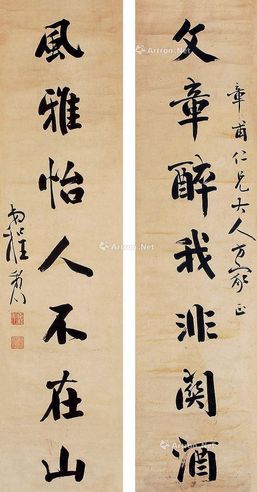 文章醉我非關酒
章甫仁兄大人方家正
風雅怡人不在山
Artron.Net
Artron.Net
Artron.Net
Artron.Net